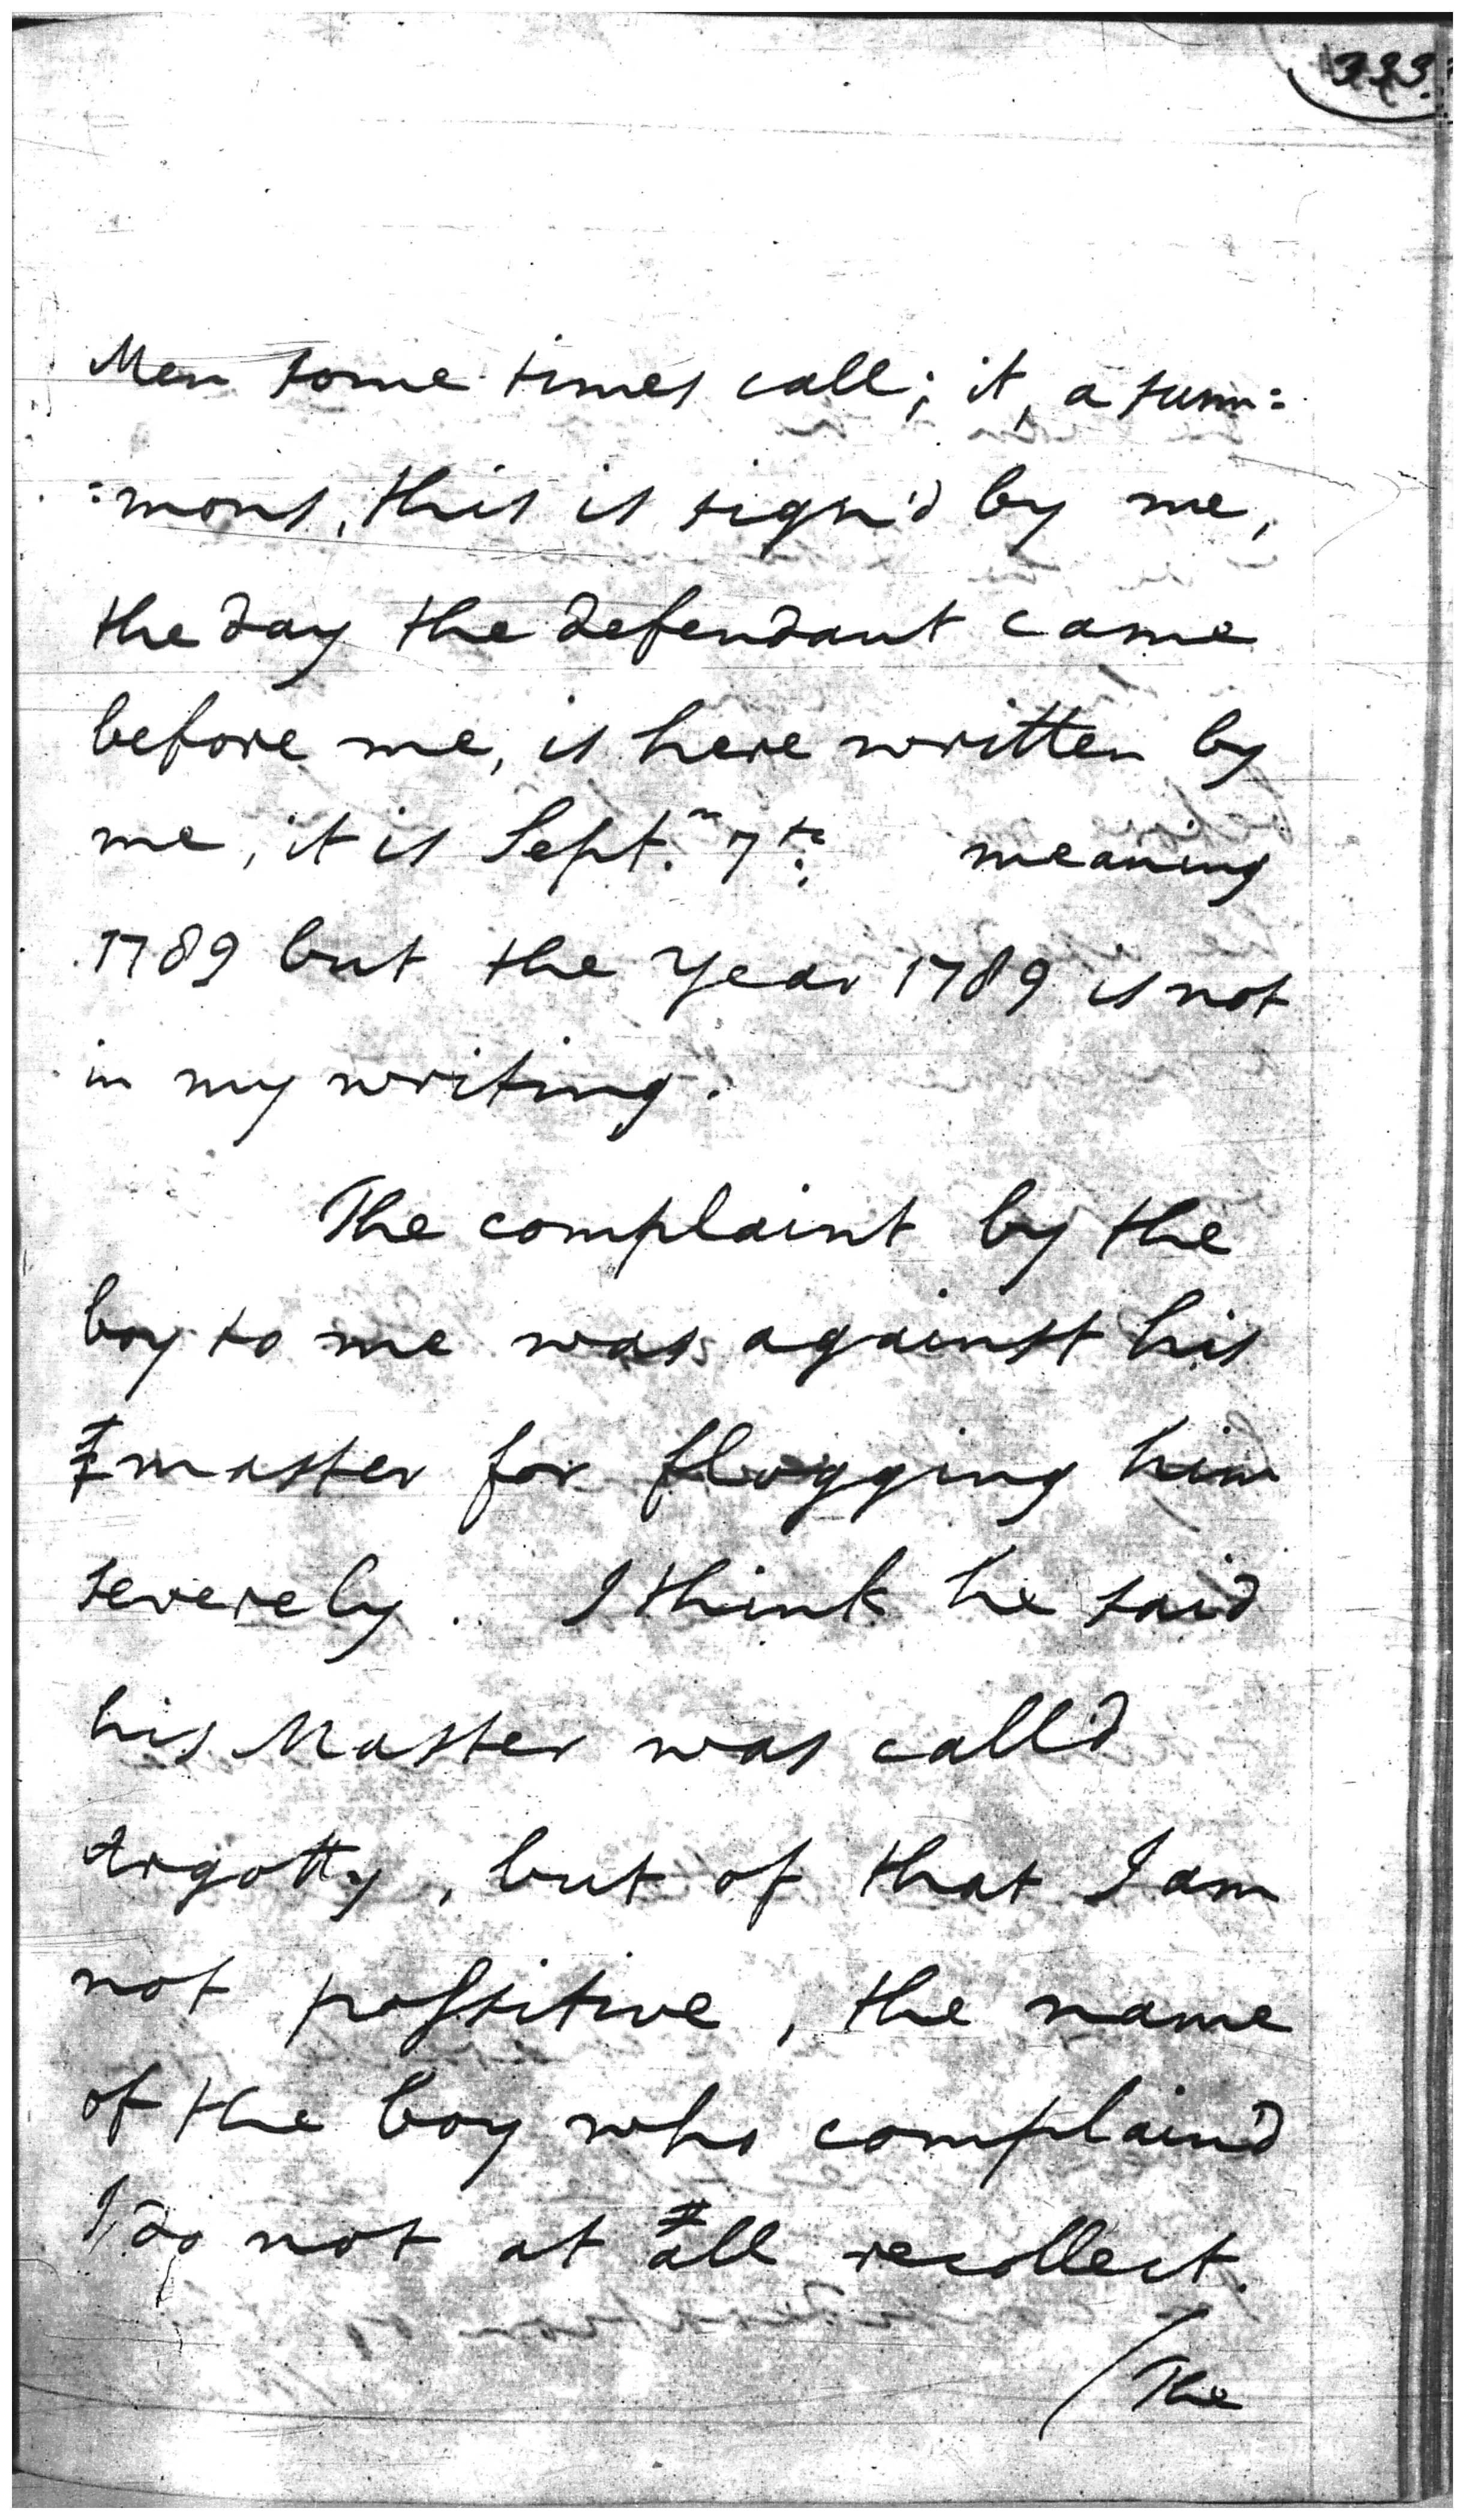 333.
Men some times call; it, a sum=
=mons, this is sign'd by me,
the day the defendant came
before me, is here written by
me, it is Sept.r 7th: meaning
1789 but the Year 1789 is not
in my writing.
The complaint by the
boy to me was against his
master for flogging him
severely.. I think he said
his Master was call'd
Argotty, but of that I am
not possitive, the name
of the boy who complain'd
I do not at all recollect.
(The